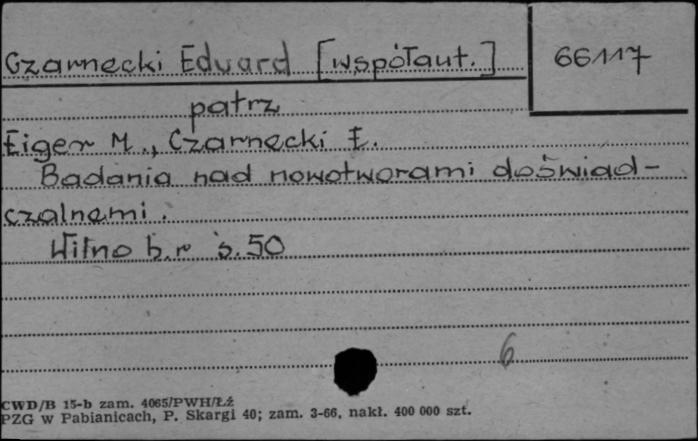 Czarnecki Edward [współaut.]
66117
patrz
Eiger M., Czarnecki E.
Badania nad nowotworami doświad-
czalnemi.
Wilno b.r s.50
6
CWD/B 15-b zam. 4065/PWH/Łź
PZG w Pabianicach, P. Skargi 40; zam. 3-66, nakł. 400 000 szt.